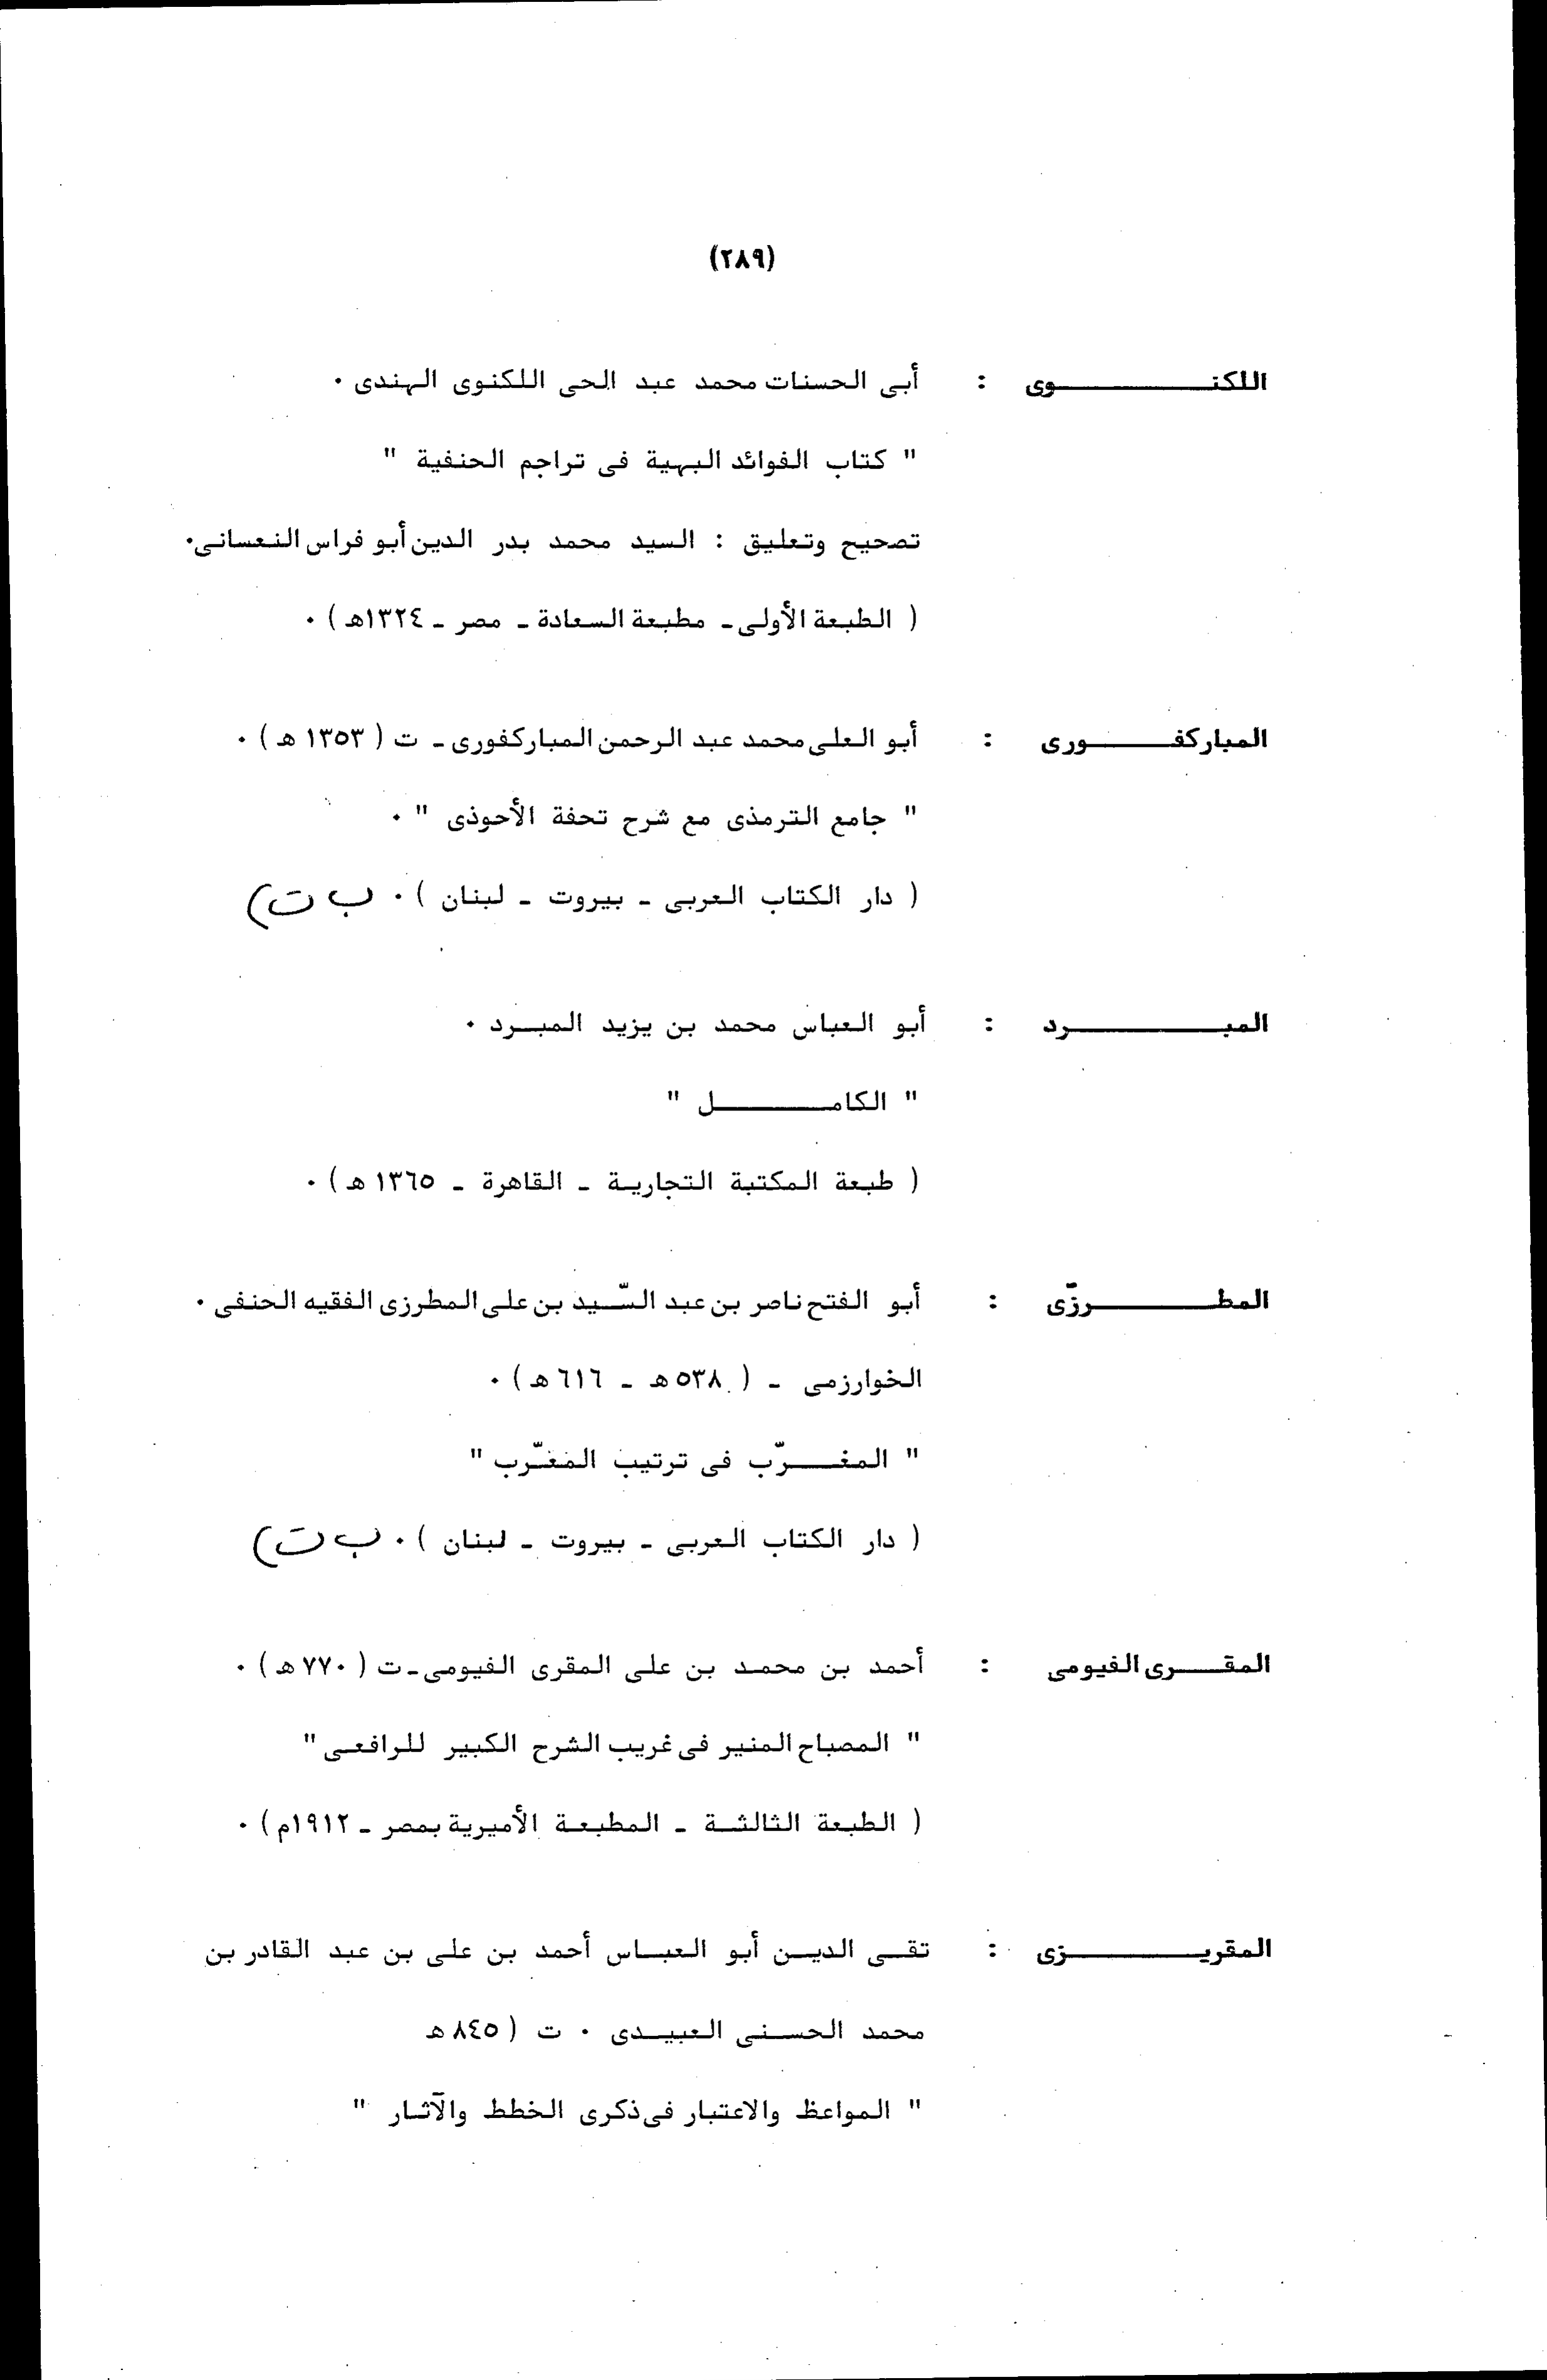 (٢٨٩)
اللكنـــــوى : أبى الحسنات محمد عبد الحى اللكنوى الهندى ٠
" كتاب الفوائد البهية فى تراجم الحنفية "
تصحيح وتعليق : السيد محمد بدر الدين أبو فراس النعسانى٠
( الطبعة الأولى ـ مطبعة السعادة ـ مصر ـ ١٣٢٤هـ ) ٠
المباركفـــــورى : أبو العلى محمد عبد الرحمن المباركفورى ـ ت ( ١٣٥٣ هـ ) ٠
" جامع الترمذى مع شرح تحفة الأحوذى " ٠
( دار الكتاب العربى ـ بيروت ـ لبنان ) ٠ ب ت )
المبـــــرد : أبو العباس محمد بن يزيد المبــرد ٠
" الكامـــــل "
( طبعة المكتبة التجارية ـ القاهرة ـ ١٣٦٥ هـ ) ٠
المطـــــرزّى : أبو الفتح ناصر بن عبد السّـيد بن على المطرزى الفقيه الحنفى ٠
الخوارزمى ـ ( ٥٣٨هـ ـ ٦١٦هـ ) ٠
" المغـــرّب فى ترتيب المعـّرب "
( دار الكتاب العربى ـ بيروت ـ لبنان ) ٠ ب ت )
المقـــرى الفيومى : أحمد بن محمـد بن على المقرى الفيومى ـ ت ( ٧٧٠هـ ) ٠
" المصباح المنير فى غريب الشرح الكبير للرافعـى "
( الطبعة الثالثـة ـ المطبعـة الأميرية بمصر ـ ١٩١٢م ) ٠
المقريـــــزى : تقـى الديـن أبو العبـاس أحمد بن على بن عبد القادر بن
محمد الحسـنى العبيـدى ٠ ت ( ٨٤٥هـ
" المواعظ والاعتبار فى ذكرى الخطط والآثـار "